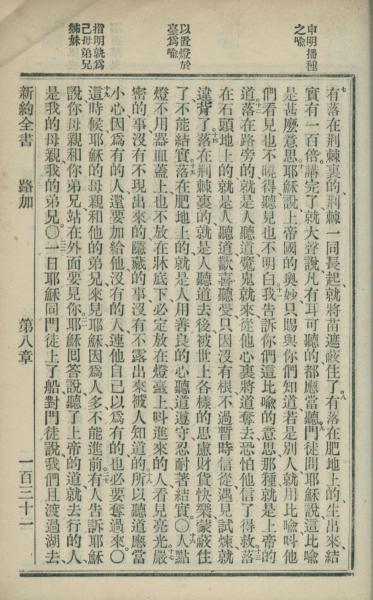 申明播種
之喩
以置燈於
臺爲喩
指明孰爲
己母弟兄
姊妹
有落在荆棘裏的荆棘一同長起就將苗遮蔽住了有落在肥地上的生出來結
實有一百倍講完了就大聲說凡有耳可聽的都應當聽門徒問耶穌說這比喩
是甚麼意思耶穌說上帝國的奧妙只賜與你們知道若是別人就用比喩呌他
們看見也不曉得聽見也不明白我告訴你們這比喩的意思那種就是上帝的
道落在路旁的就是人聽道魔鬼就來從他心裏將道奪去恐怕他信了得救落
在石頭地上的就是人聽道歡喜聽受只因沒有根不過暫時信從遇見試煉就
違背了落在荆棘裏的就是人聽道去後被世上各樣的思慮財貨快樂蒙蔽住
了不能結實落在肥地上的就是人用善良的心聽道遵守忍耐著結實〇人點
燈不用器皿蓋上也不放在牀底下必定放在燈臺上呌進來的人看見亮光嚴
密的事沒有不現出來的隱藏的事沒有不露出來被人知道的所以聽道應當
小心因爲有的人還要加給他沒有的人連他自己以爲有的也必要奪過來〇
這時候耶穌的母親和他的弟兄來見耶穌因爲人多不能進前有人告訴耶穌
說你母親和你弟兄站在外面要見你耶穌回答說聽了上帝的道就去行的人
是我的母親我的弟兄〇一日耶穌同門徒上了船對門徒說我們且渡過湖去
新約全書 路加 第八章 一百三十一